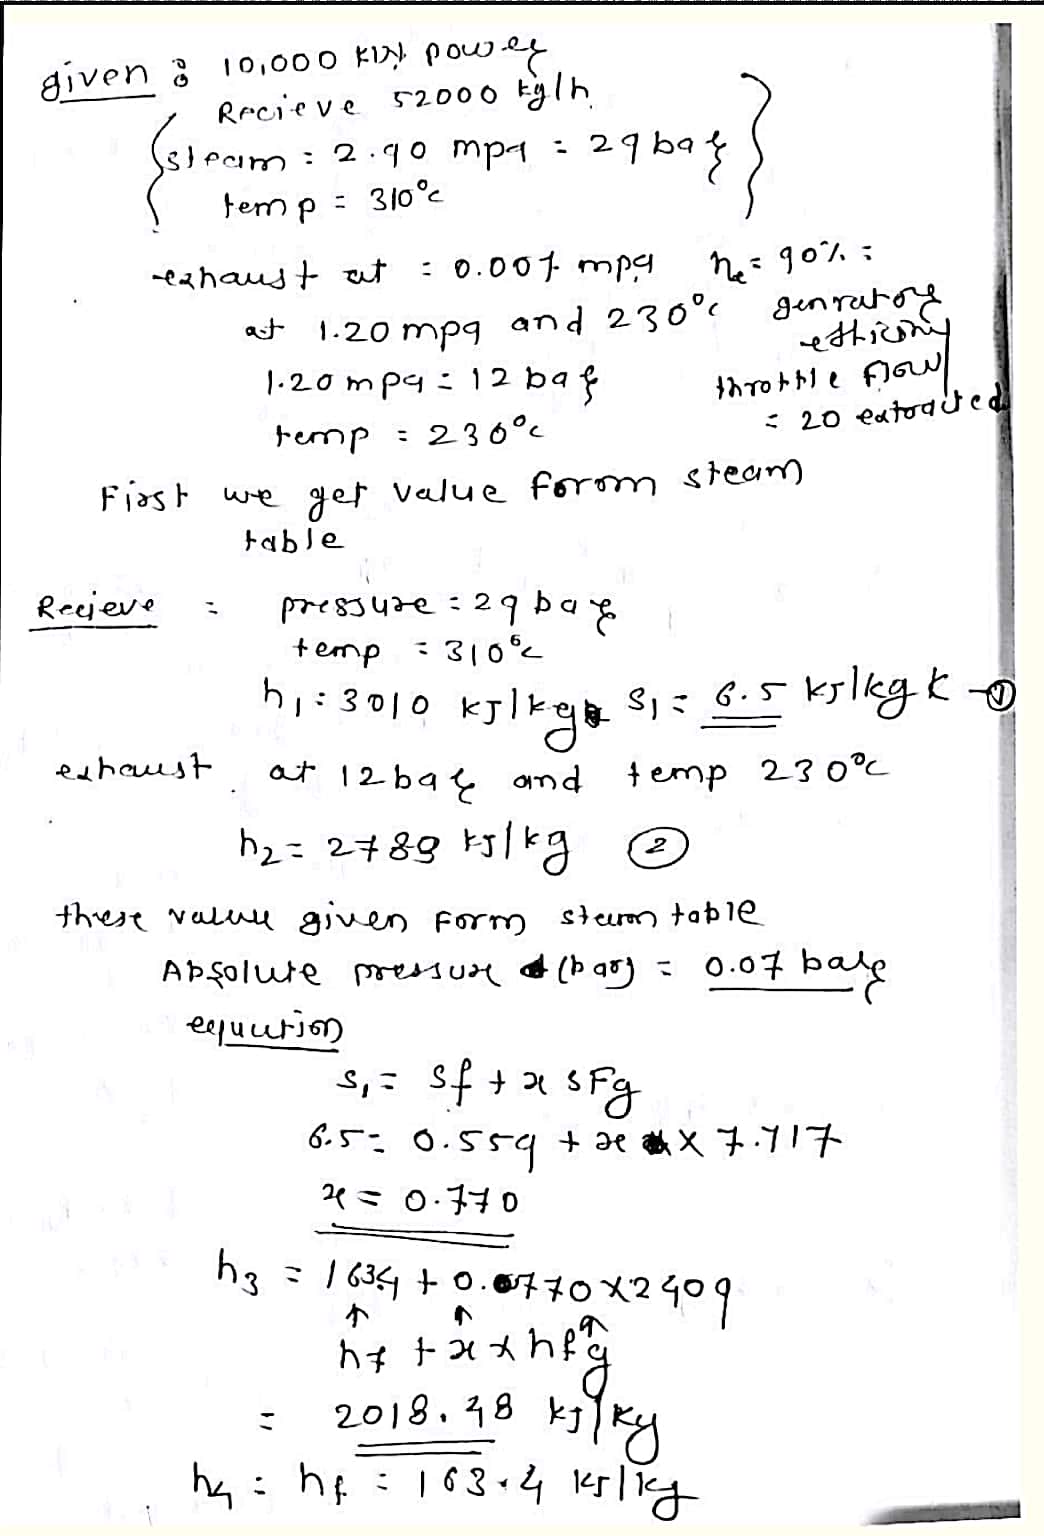 given : 10,000 KW power
Recieve 52000 kg/h
steam : 2.90 mpa = 29 bar
temp = 310°c
exhaust at : 0.007 mpa ηe = 90% =
at 1.20 mpa and 230°c genratore
1.20 mpa = 12 bar throttle flow
temp = 230°c = 20 extracted
First we get value form steam
table
Recieve : pressure = 29 bar
temp = 310°c
h1 = 3010 kJ/kg S1 = 6.5 kJ/kg k ①
exhaust at 12 bar and temp 230°c
h2 = 2789 kJ/kg ②
these value given form steam table
Absolute pressure (bar) = 0.07 bar
equation
S1 = Sf + x sFg
6.5 = 0.559 + x × 7.717
x = 0.770
h3 = 163.4 + 0.770 x 2409
↑ ↑ ↑
hf + x x hfg
= 2018.48 kJ/kg
h4 = hf = 163.4 kJ/kg